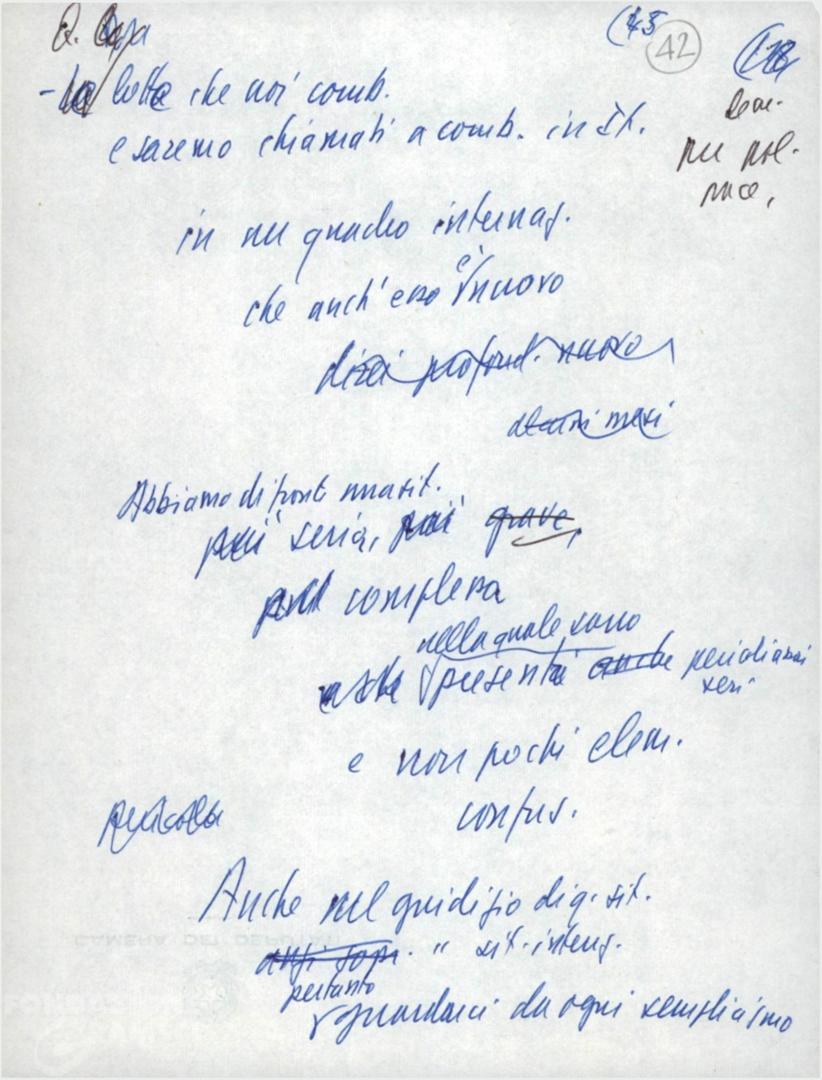 (45 42
- la lotta che noi comb.
e saremo chiamati a comb. in It.
in un quadro internaz.
che anch'esso è nuovo
direi profond. nuovo
Abbiamo di front una sit.
più seria, più grave,
più complessa
nella quale sono
presenti anche pericoli anzi
seri
e non pochi elem.
confus.
Anche nel giudizio di q. sit.
anzi sopr. " sit. intern.
pertanto
guardarci da ogni semplicismo
CAMERA DEI DEPUTATI